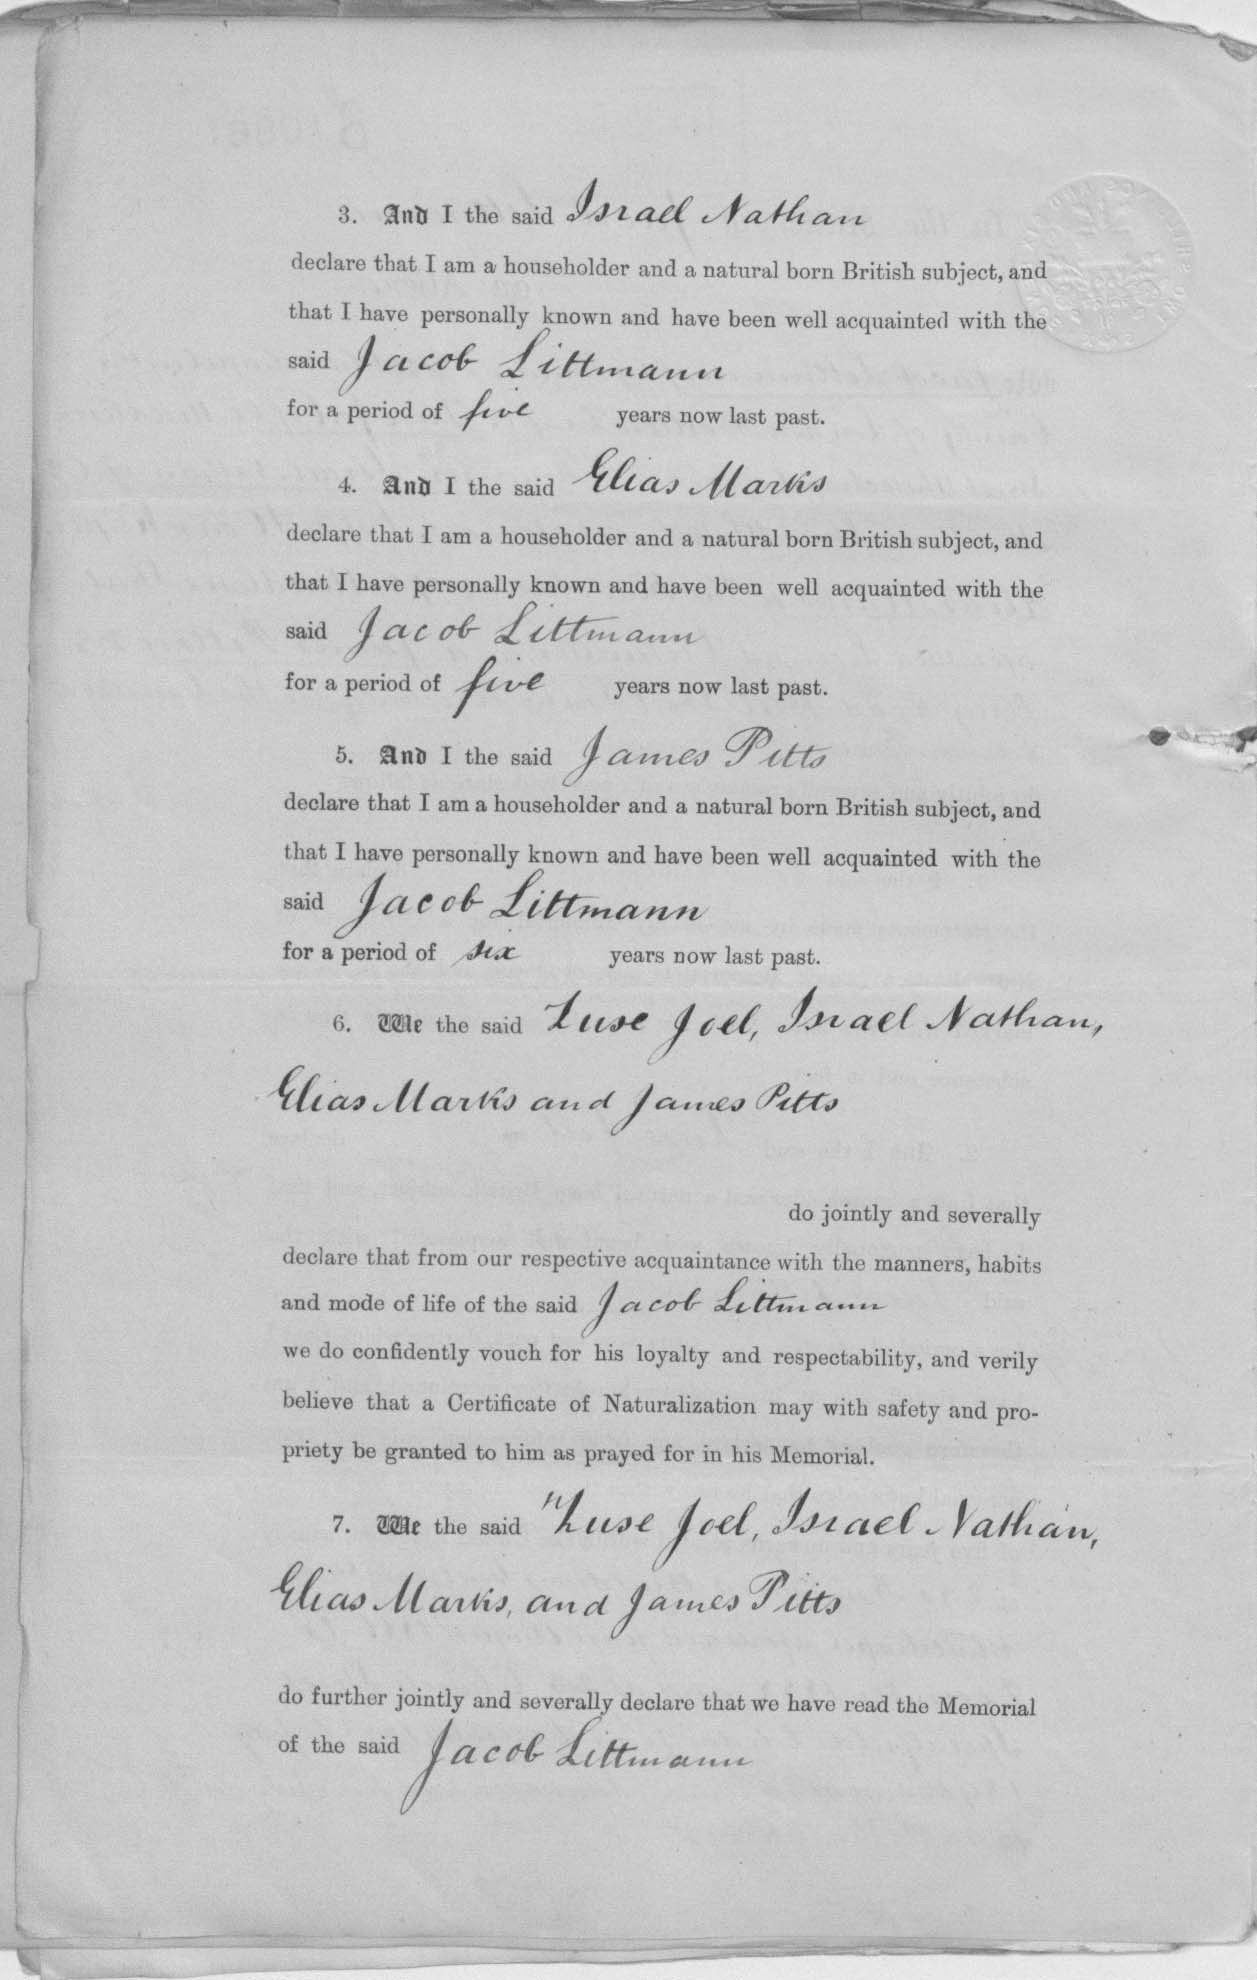 3. And I the said Israel Nathan
declare that I am a householder and a natural born British subject, and
that I have personally known and have been well acquainted with the
said Jacob Littmann
for a period of five years now last past.
4. And I the said Elias Marks
declare that I am a householder and a natural born British subject, and
that I have personally known and have been well acquainted with the
said Jacob Littmann
for a period of five years now last past.
5. And I the said James Pitts
declare that I am a householder and a natural born British subject, and
that I have personally known and have been well acquainted with the
said Jacob Littmann
for a period of six years now last past.
6. We the said Zuse Joel, Israel Nathan,
Elias Marks and James Pitts
do jointly and severally
declare that from our respective acquaintance with the manners, habits
and mode of life of the said Jacob Littmann
we do confidently vouch for his loyalty and respectability, and verily
believe that a Certificate of Naturalization may with safety and pro-
priety be granted to him as prayed for in his Memorial.
7. We the said Zuse Joel, Israel Nathan,
Elias Marks, and James Pitts
do further jointly and severally declare that we have read the Memorial
of the said Jacob Littmann